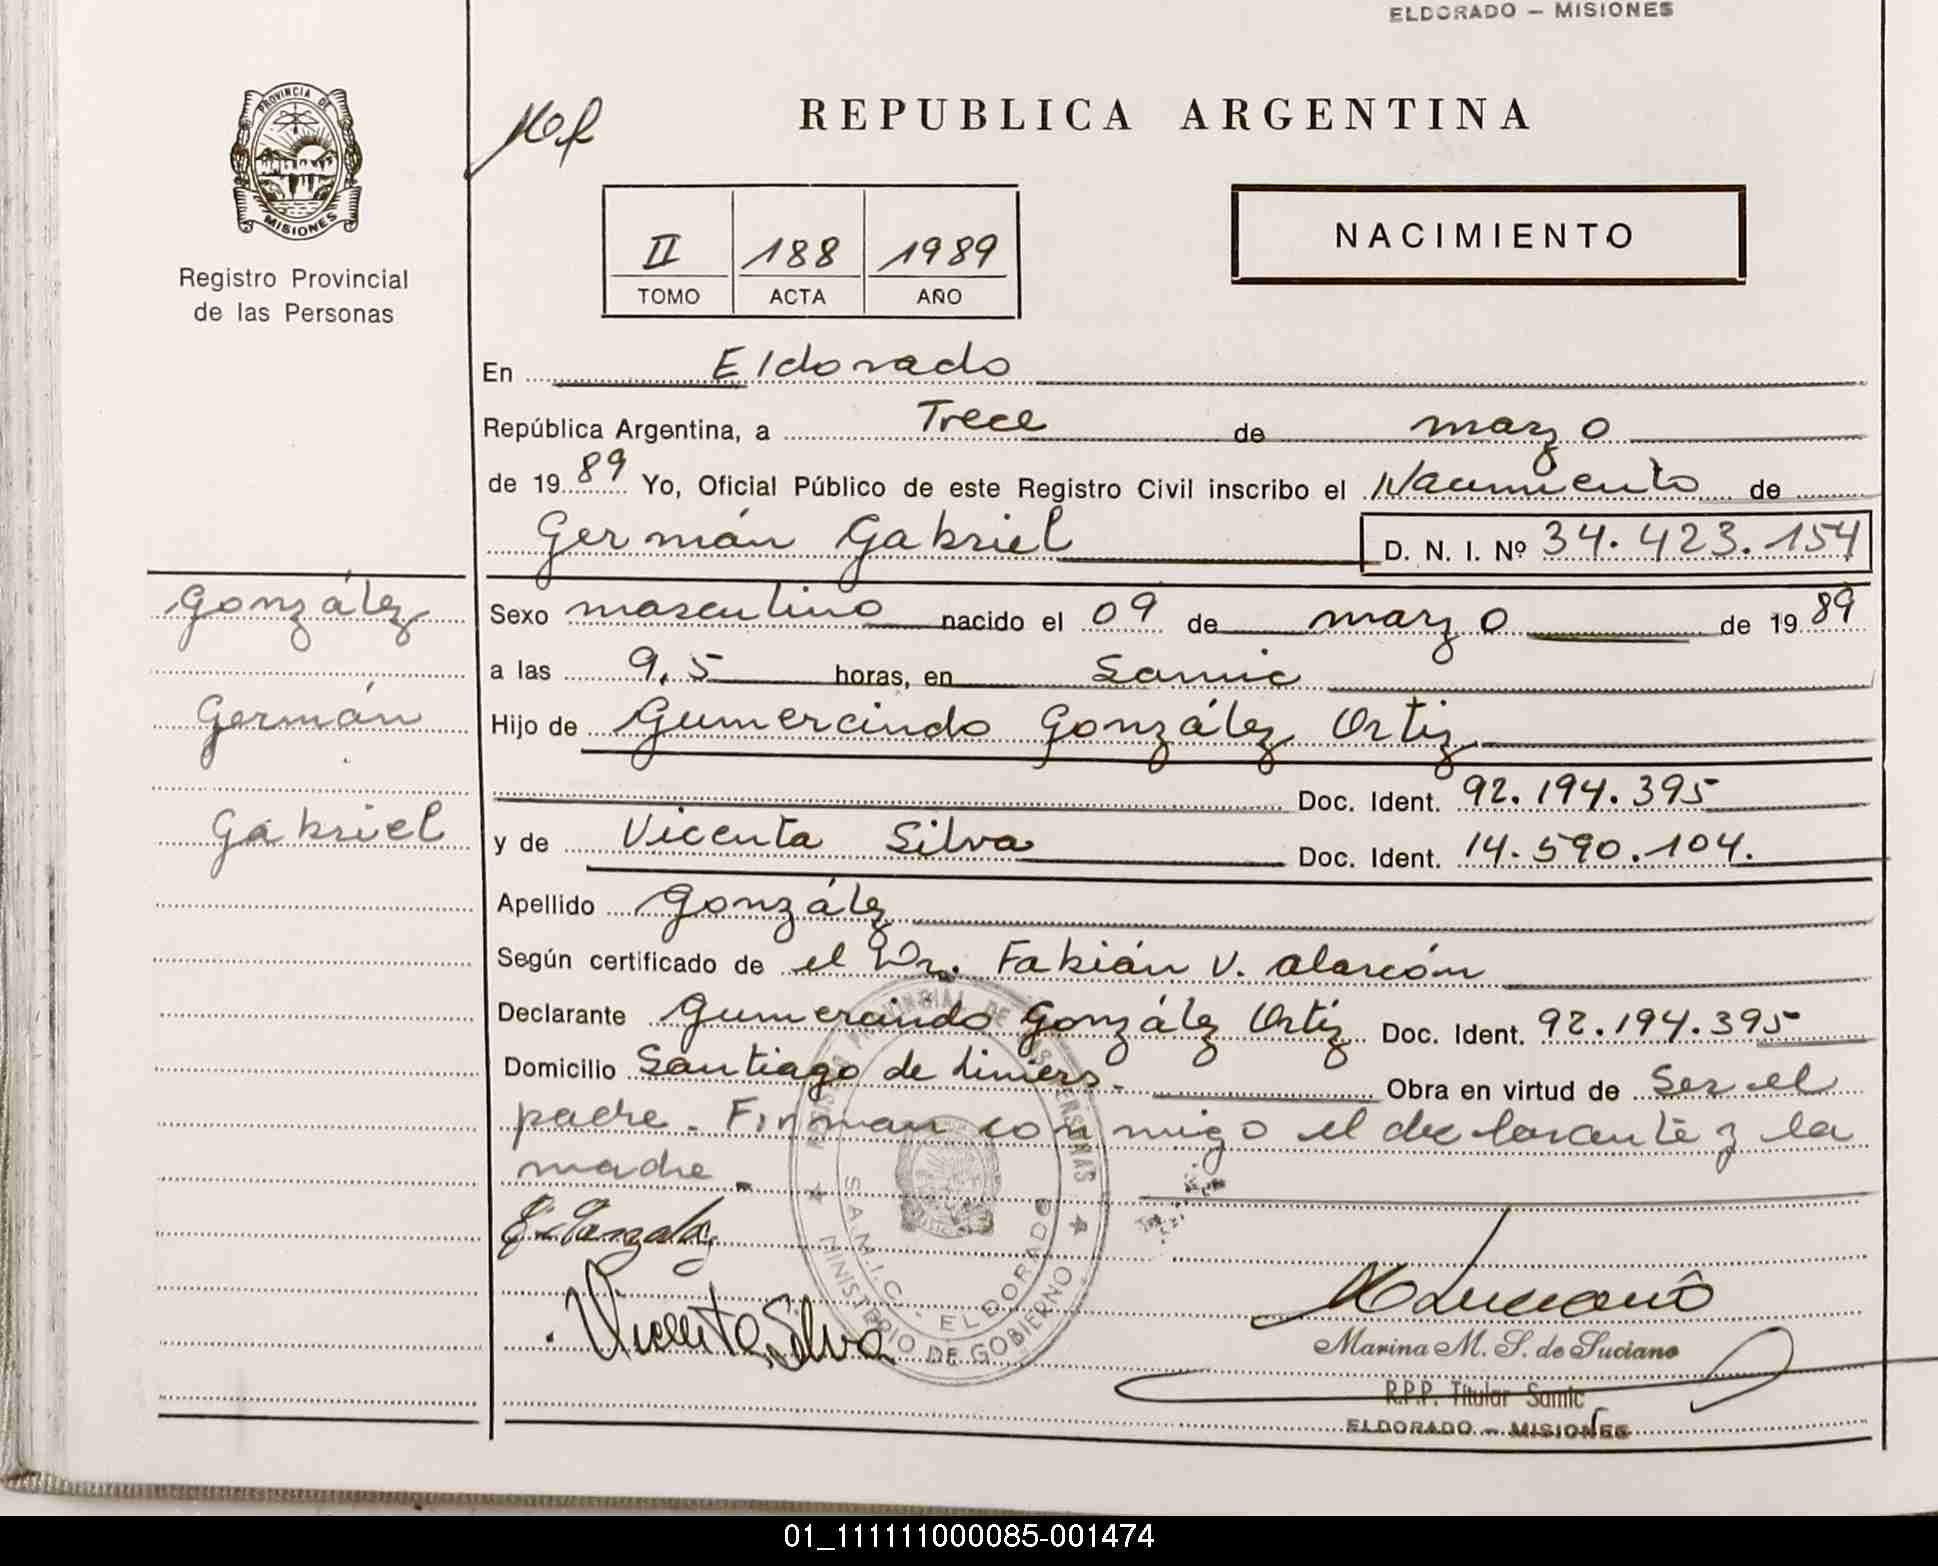 ELDORADO — MISIONES
PROVINCIA DE
MISIONES
Registro Provincial
de las Personas
REPUBLICA ARGENTINA
II 188 1989
TOMO ACTA AÑO
NACIMIENTO
En Eldorado
República Argentina, a Trece de marzo
de 1989 Yo, Oficial Público de este Registro Civil inscribo el Nacimiento de
Germán Gabriel D. N. I. Nº 34.423.154
González
Germán
Gabriel
Sexo masculino nacido el 09 de marzo de 1989
a las 9,5 horas, en Samic
Hijo de Gumercindo González Ortiz
Doc. Ident. 92.194.395
y de Vicenta Silva Doc. Ident. 14.590.104.
Apellido González
Según certificado de el Dr. Fabián V. Alarcón
Declarante Gumercindo González Ortiz Doc. Ident. 92.194.395
Domicilio Santiago de Liniers. Obra en virtud de Ser el
padre. Firman conmigo el declarante y la
madre.
REGISTRO PROVINCIAL DE LAS PERSONAS
S.A.M.I.C. - ELDORADO
MINISTERIO DE GOBIERNO
Vicenta Silva
Marina M. S. de Luciano
R.P.P. Titular Samic
ELDORADO — MISIONES
01_111111000085-001474